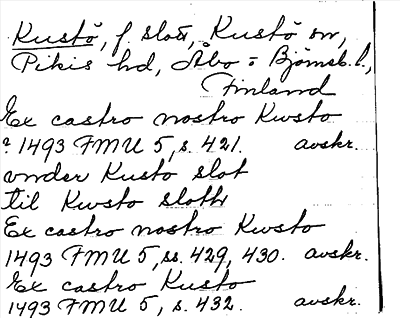 Kustö, f. slott, Kustö sn,
Pikis hd, Åbo = Björneb. l.,
Finland
Ex castro nostro Kwsto
? 1493 FMU 5, s. 421. avskr.
vnder Kusto slot
til Kwsto sloth
Ex castro nostro Kwsto
1493 FMU 5, ss. 429, 430. avskr.
Ex castro Kusto
1493 FMU 5, s. 432. avskr.